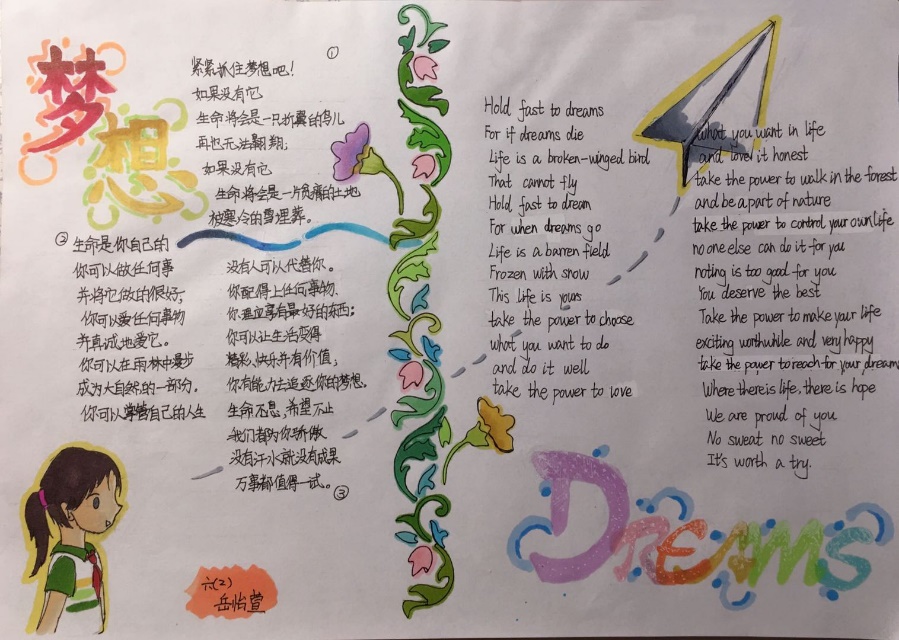 梦想
①
紧紧抓住梦想吧！
如果没有它
生命将会是一只折翼的鸟儿
再也无法翱翔；
如果没有它
生命将会是一片贫瘠的土地
被寒冷的雪埋葬。
②生命是你自己的
你可以做任何事
并将它做的很好；
你可以爱任何事物
并真诚地爱它。
你可以在雨林中漫步
成为大自然的一部分，
你可以掌管自己的人生
没有人可以代替你。
你配得上任何事物、
你适应享有最好的东西；
你可以让生活变得
精彩、快乐并有价值；
你有能力去追逐你的梦想，
生命不息，希望不止
我们都为你骄傲
没有汗水就没有成果
万事都值得一试。
③
六(2)
岳怡萱
Hold fast to dreams
For if dreams die
Life is a broken-winged bird
That cannot fly
Hold fast to dream
For when dreams go
Life is a barren field
Frozen with snow
This Life is yours
take the power to choose
what you want to do
and do it well
take the power to love
what you want in life
and love it honest
take the power to walk in the forest
and be a part of nature
take the power to control your own life
no one else can do it for you
noting is too good for you
You deserve the best
Take the power to make your life
exciting worthwhile and very happy
take the power to reach for your dream
Where there is life, there is hope
We are proud of you
No sweat no sweet
It's worth a try.
DREAMS